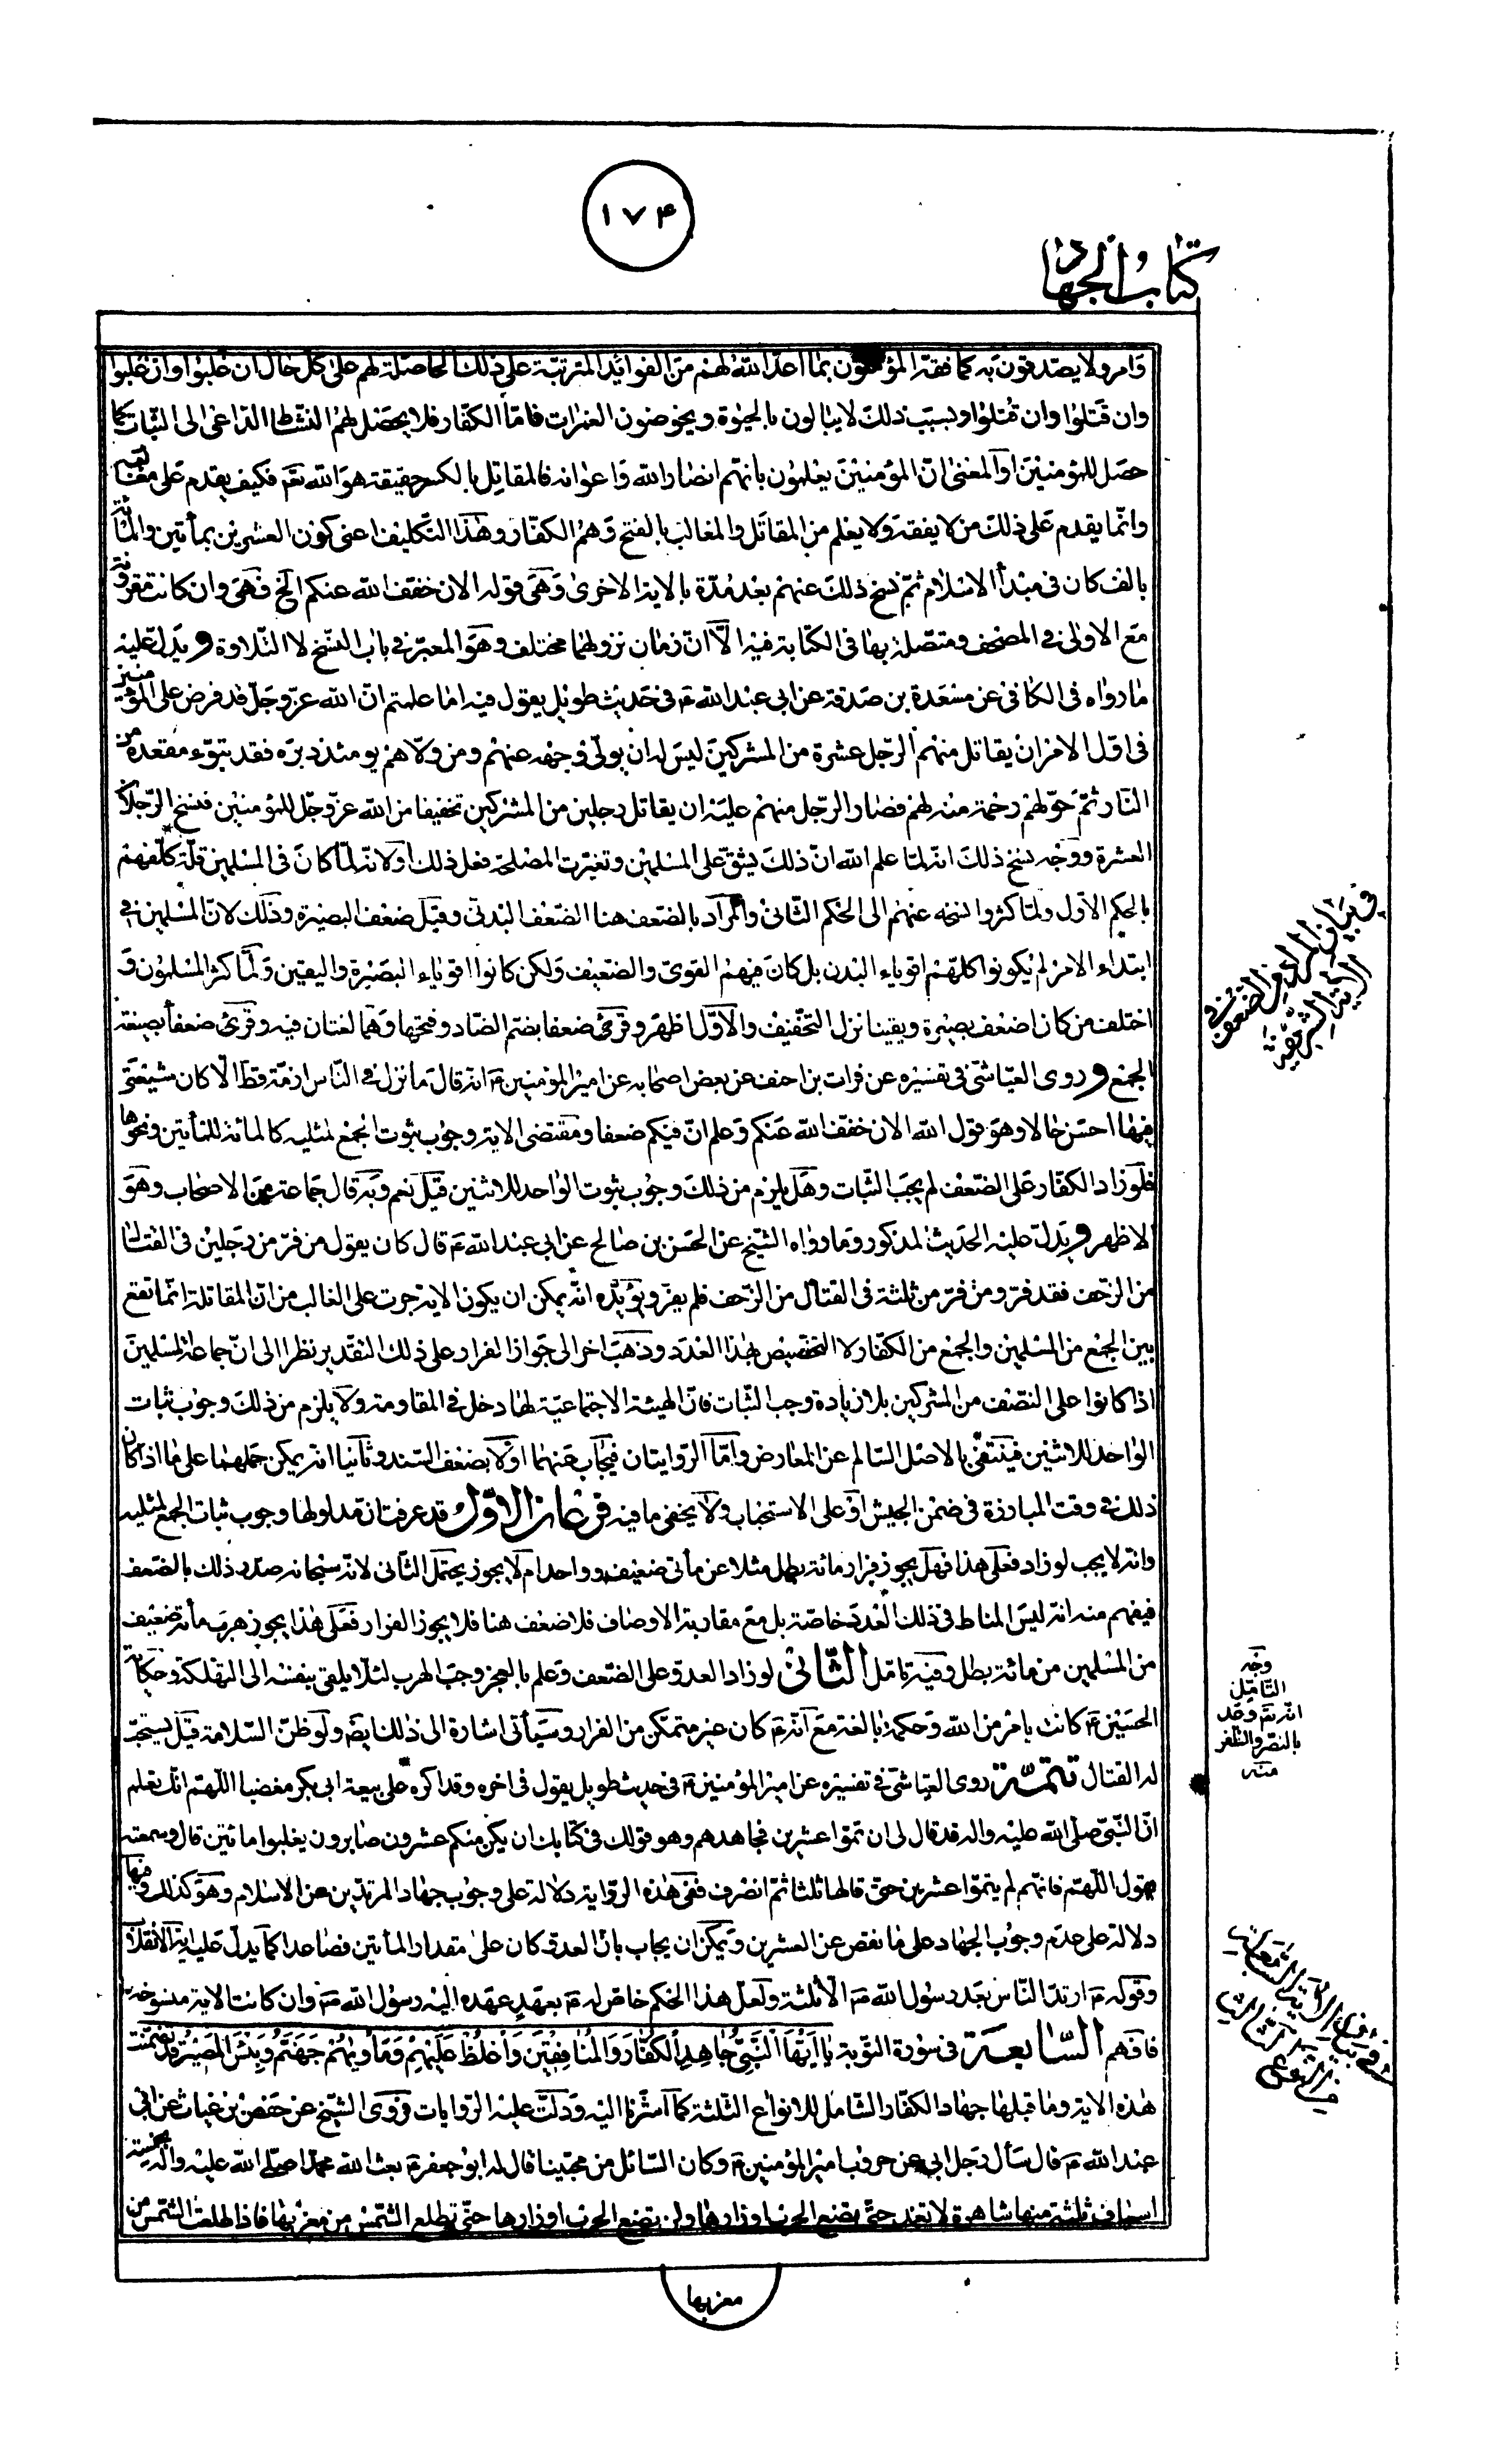 ١٧۴
كتاب الجهاد
وامر ولا يصدقون به كما فقه المؤمنون بما اعد الله لهم من الفوائد المترتبة على ذلك الحاصلة لهم على كل حال ان غلبوا وان غلبوا
وان قتلوا وان قتلوا وبسبب ذلك لا يبالون بالحيوة ويخوضون الغمرات فامّا الكفّار فلا يحصل لهم النشاط الداعى الى الثبات كما
حصل للمؤمنين او المعنى انّ المؤمنين يعلمون بانّهم انصار الله واعوانه فالمقاتل بالكسر حقيقة هو الله تعم فكيف يقدم على مغالبته
وانّما يقدم على ذلك من لا يفقه ولا يعلم من المقاتَل والمغالب بالفتح وهم الكفّار وهذا التكليف اعنى كون العشرين بمأتين والمأئة
بالف كان فى مبدأ الاسلام ثمّ نسخ ذلك عنهم بعد مدّة بالاية الاخرى وهى قوله الان خفّف الله عنكم الخ فهى وان كانت مقرونة
مع الاولى فى المصحف ومتصلة بها فى الكتابة فيه الّا انّ زمان نزولهما مختلف وهو المعبّر فى باب النسخ لا التلاوة ويدلّ عليه
ما رواه فى الكافى عن مسعدة بن صدقة عن ابى عبد الله ع فى حديث طويل يقول فيه اما علمتم انّ الله عزّ وجلّ قد فرض على المؤمنين
فى اوّل الامر ان يقاتل منهم الرجل عشرة من المشركين ليس له ان يولّى وجهه عنهم ومن ولّاهم يومئذ دبره فقد تبوّء مقعده من
النار ثمّ حوّلهم رحمة منه لهم فصار الرجل منهم عليه ان يقاتل رجلين من المشركين تخفيفا من الله عزّ وجلّ للمؤمنين فنسخ الرجلان
العشرة ووجه نسخ ذلك انّه لمّا علم الله انّ ذلك يشقّ على المسلمين وتغيّرت المصلحة فعل ذلك او لانّه لمّا كان فى المسلمين قلّة كلّفهم
بالحكم الاوّل ولمّا كثروا نسخه عنهم الى الحكم الثانى والمراد بالضعف هنا الضعف البدنى وقيل ضعف البصيرة وذلك لانّ المسلمين فى
ابتداء الامر لم يكونوا كلّهم اقوياء البدن بل كان فيهم القوى والضعيف ولكن كانوا اقوياء البصيرة واليقين ولمّا كثر المسلمون و
اختلف من كان اضعف بصيرة ويقينا نزل التخفيف والاوّل اظهر وقرئ ضعفا بضم الضاد وفتحها وهما لغتان فيه وقرئ ضعفاء بصيغة
الجمع وروى العيّاشى فى تفسيره عن فرات بن احنف عن بعض اصحابه عن امير المؤمنين ع انّه قال ما نزل فى الناس ازمة قط الّا كان شيعتى
فيها احسن حالا وهو قول الله الان خفّف الله عنكم وعلم انّ فيكم ضعفا ومقتضى الاية وجوب ثبوت الجمع لمثليه كالمائة للمأتين ونحوها
فلو زاد الكفّار على الضعف لم يجب الثبات وهل يلزم من ذلك وجوب ثبوت الواحد للاثنين قيل نعم وبه قال جماعة من الاصحاب وهو
الاظهر ويدلّ عليه الحديث المذكور وما رواه الشيخ عن الحسن بن صالح عن ابى عبد الله ع قال كان يقول من فرّ من رجلين فى القتال
من الزحف فقد فرّ ومن فرّ من ثلثة فى القتال من الزحف فلم يفرّ ويؤيّده انّه يمكن ان يكون الاية جرت على الغالب من انّ المقاتلة انّما تقع
بين الجمع من المسلمين والجمع من الكفّار ولا التخصيص بهذا العدد وذهب اخر الى جواز الفرار وعلى ذلك التقدير نظرا الى انّ جماعة المسلمين
اذا كانوا على النصف من المشركين بلا زيادة وجب الثبات فانّ الهيئة الاجتماعيّة لها دخل فى المقاومة ولا يلزم من ذلك وجوب ثبات
الواحد للاثنين فينتفى بالاصل السالم عن المعارض وامّا الروايتان فيجاب عنهما اوّلا بضعف السند وثانيا انّه يمكن حملهما على ما اذا كان
ذلك فى وقت المبارزة فى ضمن الجيش او على الاستحباب ولا يخفى ما فيه فرعان الاوّل قد عرفت ان مدلولها وجوب ثبات الجمع لمثليه
وانّه لا يجب لو زاد فعلى هذا فهل يجوز فرار مائة بطل مثلا عن مأتى ضعيف وواحد ام لا يجوز يحتمل الثانى لانّه سبحانه صدّر ذلك بالضعف
فيفهم منه انّه ليس المناط فى ذلك العدد خاصّة بل مع مقاربة الاوصاف فلا ضعف هنا فلا يجوز الفرار فعلى هذا يجوز هرب مأئة ضعيف
من المسلمين من مائة بطل وفيه تامّل الثانى لو زاد العدوّ على الضعف وعلم بالعجز وجب الهرب لئلّا يلقى بنفسه الى التهلكة وحكاية
الحسين ع كانت بامر من الله وحكمة بالغة مع انّه ع كان غير متمكّن من الفرار وسيأتى اشارة الى ذلك ايضا ولو ظنّ السلامة قيل يستحبّ
له القتال تتمّة روى العيّاشى فى تفسيره عن امير المؤمنين ع فى حديث طويل يقول فى اخره وقد اكره على بيعة ابى بكر مغضبا اللّهم انّك تعلم
انّ النبىّ صلى الله عليه واله قد قال لى ان تمّوا عشرين فجاهدهم وهو قولك فى كتابك ان يكن منكم عشرون صابرون يغلبوا مائتين قال وسمعته
يقول اللّهم فانّهم لم يتمّوا عشرين حتى قالها ثلثا ثمّ انصرف ففى هذه الرواية دلالة على وجوب جهاد المرتدّين عن الاسلام وهو كذلك وفيها
دلالة على عدم وجوب الجهاد على ما نقص عن العشرين ويمكن ان يجاب بانّ العدوّ كان على مقدار المأتين فصاعدا كما يدلّ عليه اية الانقلاب
وقوله ع ارتدّ الناس بعد رسول الله ص الّا ثلثة ولعلّ هذا الحكم خاصّ له ع بعهد عهده اليه رسول الله ص وان كانت الاية منسوخة
فافهم السابعة فى سورة التوبة يا ايّها النبىّ جاهد الكفّار والمنافقين واغلظ عليهم ومأويهم جهنّم وبئس المصير قد تضمّنت
هذه الاية وما قبلها جهاد الكفّار الشامل للانواع الثلثة كما اشرنا اليه ودلّت عليه الروايات فروى الشيخ عن حفص بن غياث عن ابى
عبد الله ع قال سأل رجل ابى عن حروب امير المؤمنين ع وكان السائل من محبّينا قال له ابو جعفر ع بعث الله محمّدا صلى الله عليه واله بخمسة
اسياف ثلثة منها شاهرة لا تغمد حتى تضع الحرب اوزارها ولن تضع الحرب اوزارها حتى تطلع الشمس من مغربها فاذا طلعت الشمس من
مغربها
فى بيان المراد من الضعف فى
الاية الشريفة
وجه
التامّل
انّه تعم وعد
بالنصر والظفر
منه